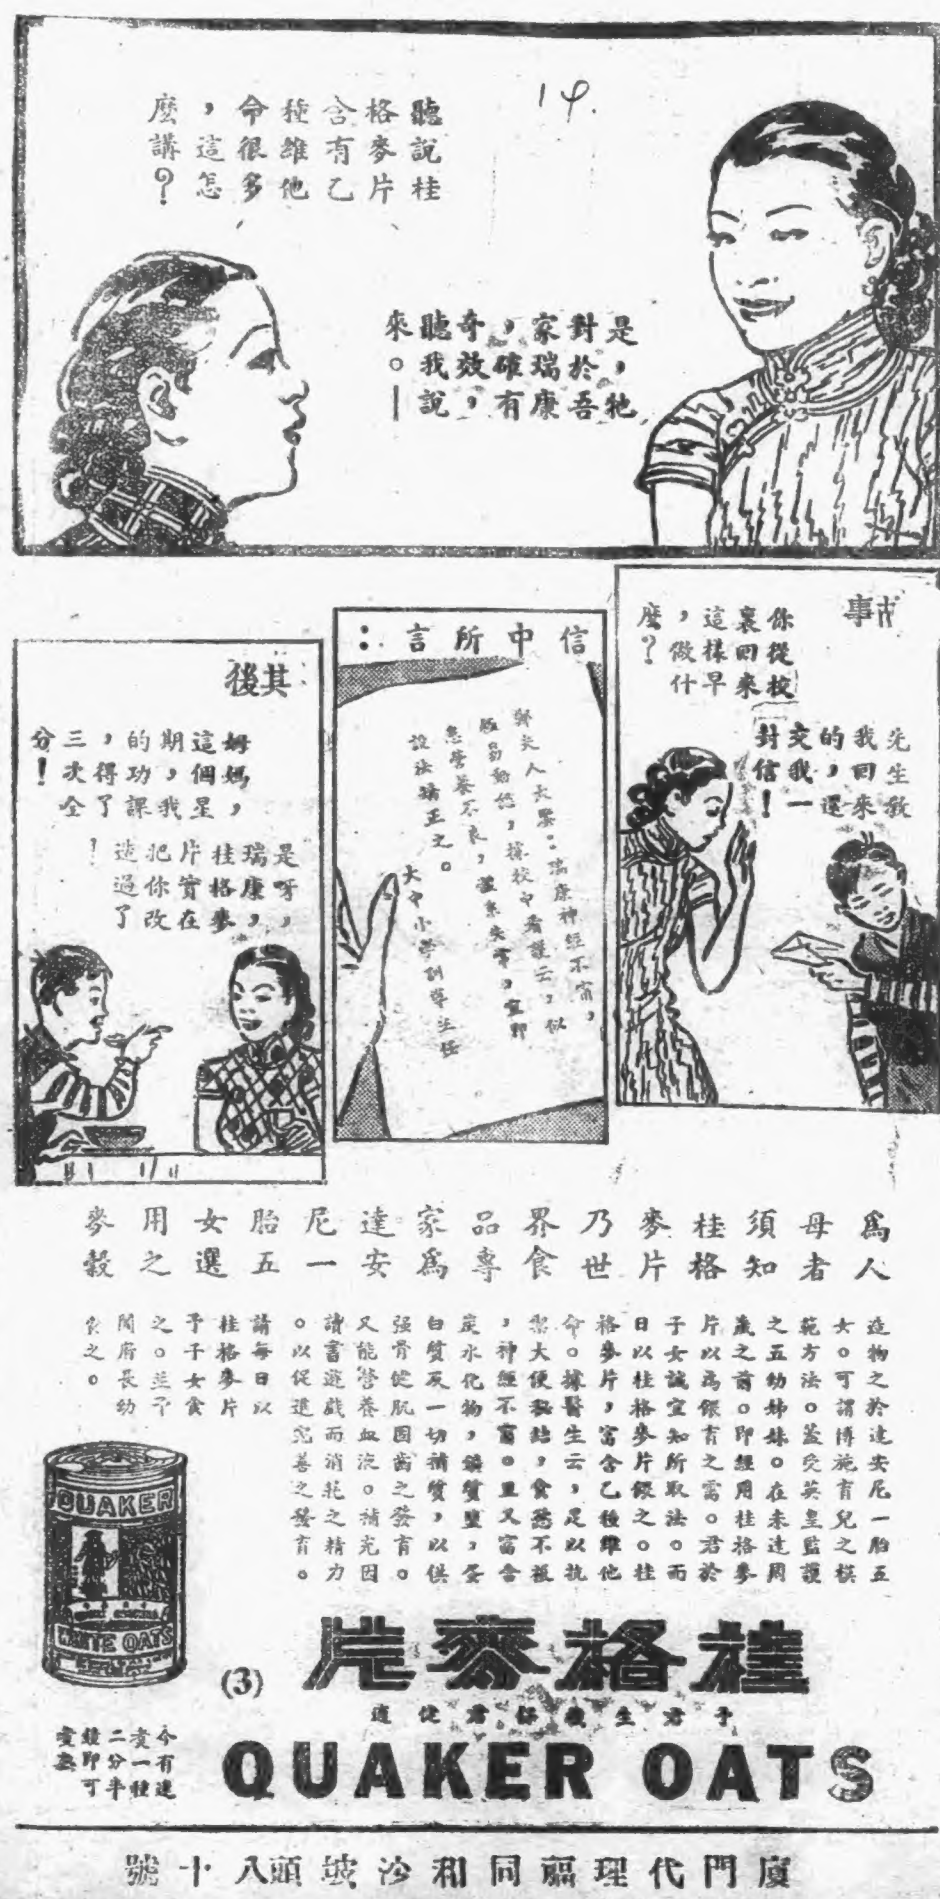 聽說桂
格麥片
含有乙
種維他
命很多
，這怎
麼講？
14.
是，牠
對於吾
家瑞康
，確有
奇效，
聽我說
來。｜
事
你從校
裏回來
這樣早
，做什
麼？
先生教
我回來
的，還
交我一
封信！
信中所言：
夫人大鑒：瑞康神經不甯，
極易動怒，據校中看護云，似
患營養不良，體素失常，宜即
設法矯正之。
大中小學訓導主任
其後
媽媽，
這個星
期，我
的功課
，得了
三次全
分！
是呀，
瑞康，
桂格麥
片實在
把你改
造過了
！
為人
母者
須知
桂格
麥片
乃世
界食
品專
家為
達安
尼一
胎五
女選
用之
麥穀
造物之於達安尼一胎五
女。可謂博施育兒之模
範方法。蓋受英皇監護
之五幼姊妹。在未達周
歲之前。即經用桂格麥
片以為餵育之需。君於
子女誠宜知所取法。而
日以桂格麥片餵之。桂
格麥片，富含乙種維他
命。據醫生云，足以抗
禦大便秘結，食慾不振
，神經不甯。且又富含
炭水化物，鑛質鹽，蛋
白質及一切補質，以供
强骨健肌固齒之發育。
又能營養血液。補充因
讀書遊戲而消耗之精力
。以促進完善之發育。
請每日以
桂格麥片
予子女食
之。並予
閤府長幼
食之。
QUAKER
WHITE OATS
桂格麥片
(3)
予君生氣俾君健
QUAKER OATS
今有速
煑一種
二分半
鐘即可
煑熟
廈門代理福同和沙坡頭八十號